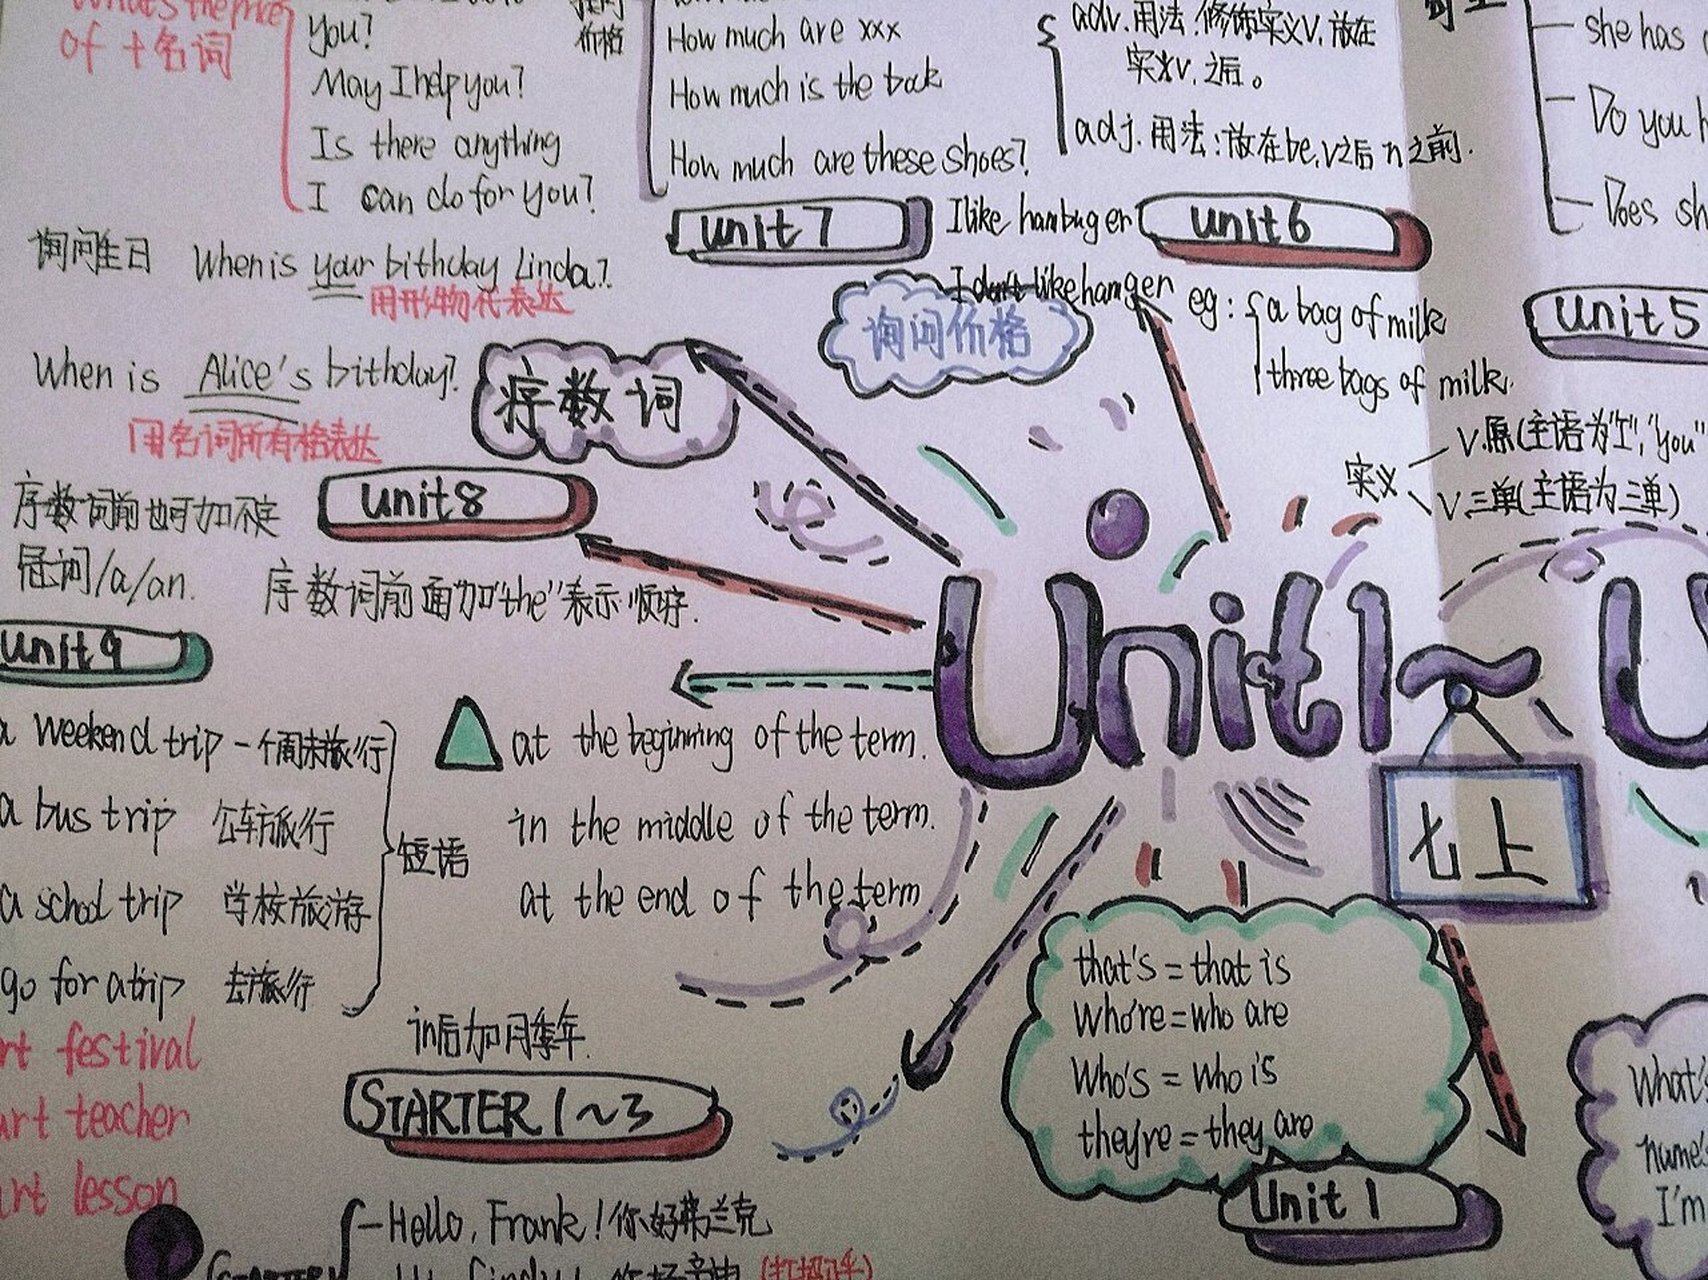 What's the price
of + 名词
you?
May I help you?
Is there anything
I can do for you?
价格
How much are xxx
How much is the book
How much are these shoes?
adv.用法:修饰实义v,放在
实义v,之后。
adj.用法:放在be,v之后n之前.
she has
Do you h
Does sh
unit7
I like hambuger
unit6
询问生日 When is your bithday Linda?
用形物代表达
I don't like hamger
询问价格
eg: a bag of milk
three bags of milk.
unit5
When is Alice's bithday?
用名词所有格表达
序数词
实义
V.原(主语为"I","you"
V.三单(主语为三单)
unit8
序数词前也可加不定
冠词/a/an.
序数词前面加"the"表示顺序.
unit9
Unit1~U
七上
a weekend trip - 一个周末旅行
a bus trip 公车旅行
a school trip 学校旅游
go for a trip 去旅行
短语
at the beginning of the term.
in the middle of the term.
at the end of the term
in后加月季年.
rt festival
art teacher
art lesson
STARTER 1~3
that's = that is
Who're = who are
Who's = who is
they're = they are
Unit 1
What's
name's
I'm
STARTER
-Hello, Frank! 你好弗兰克